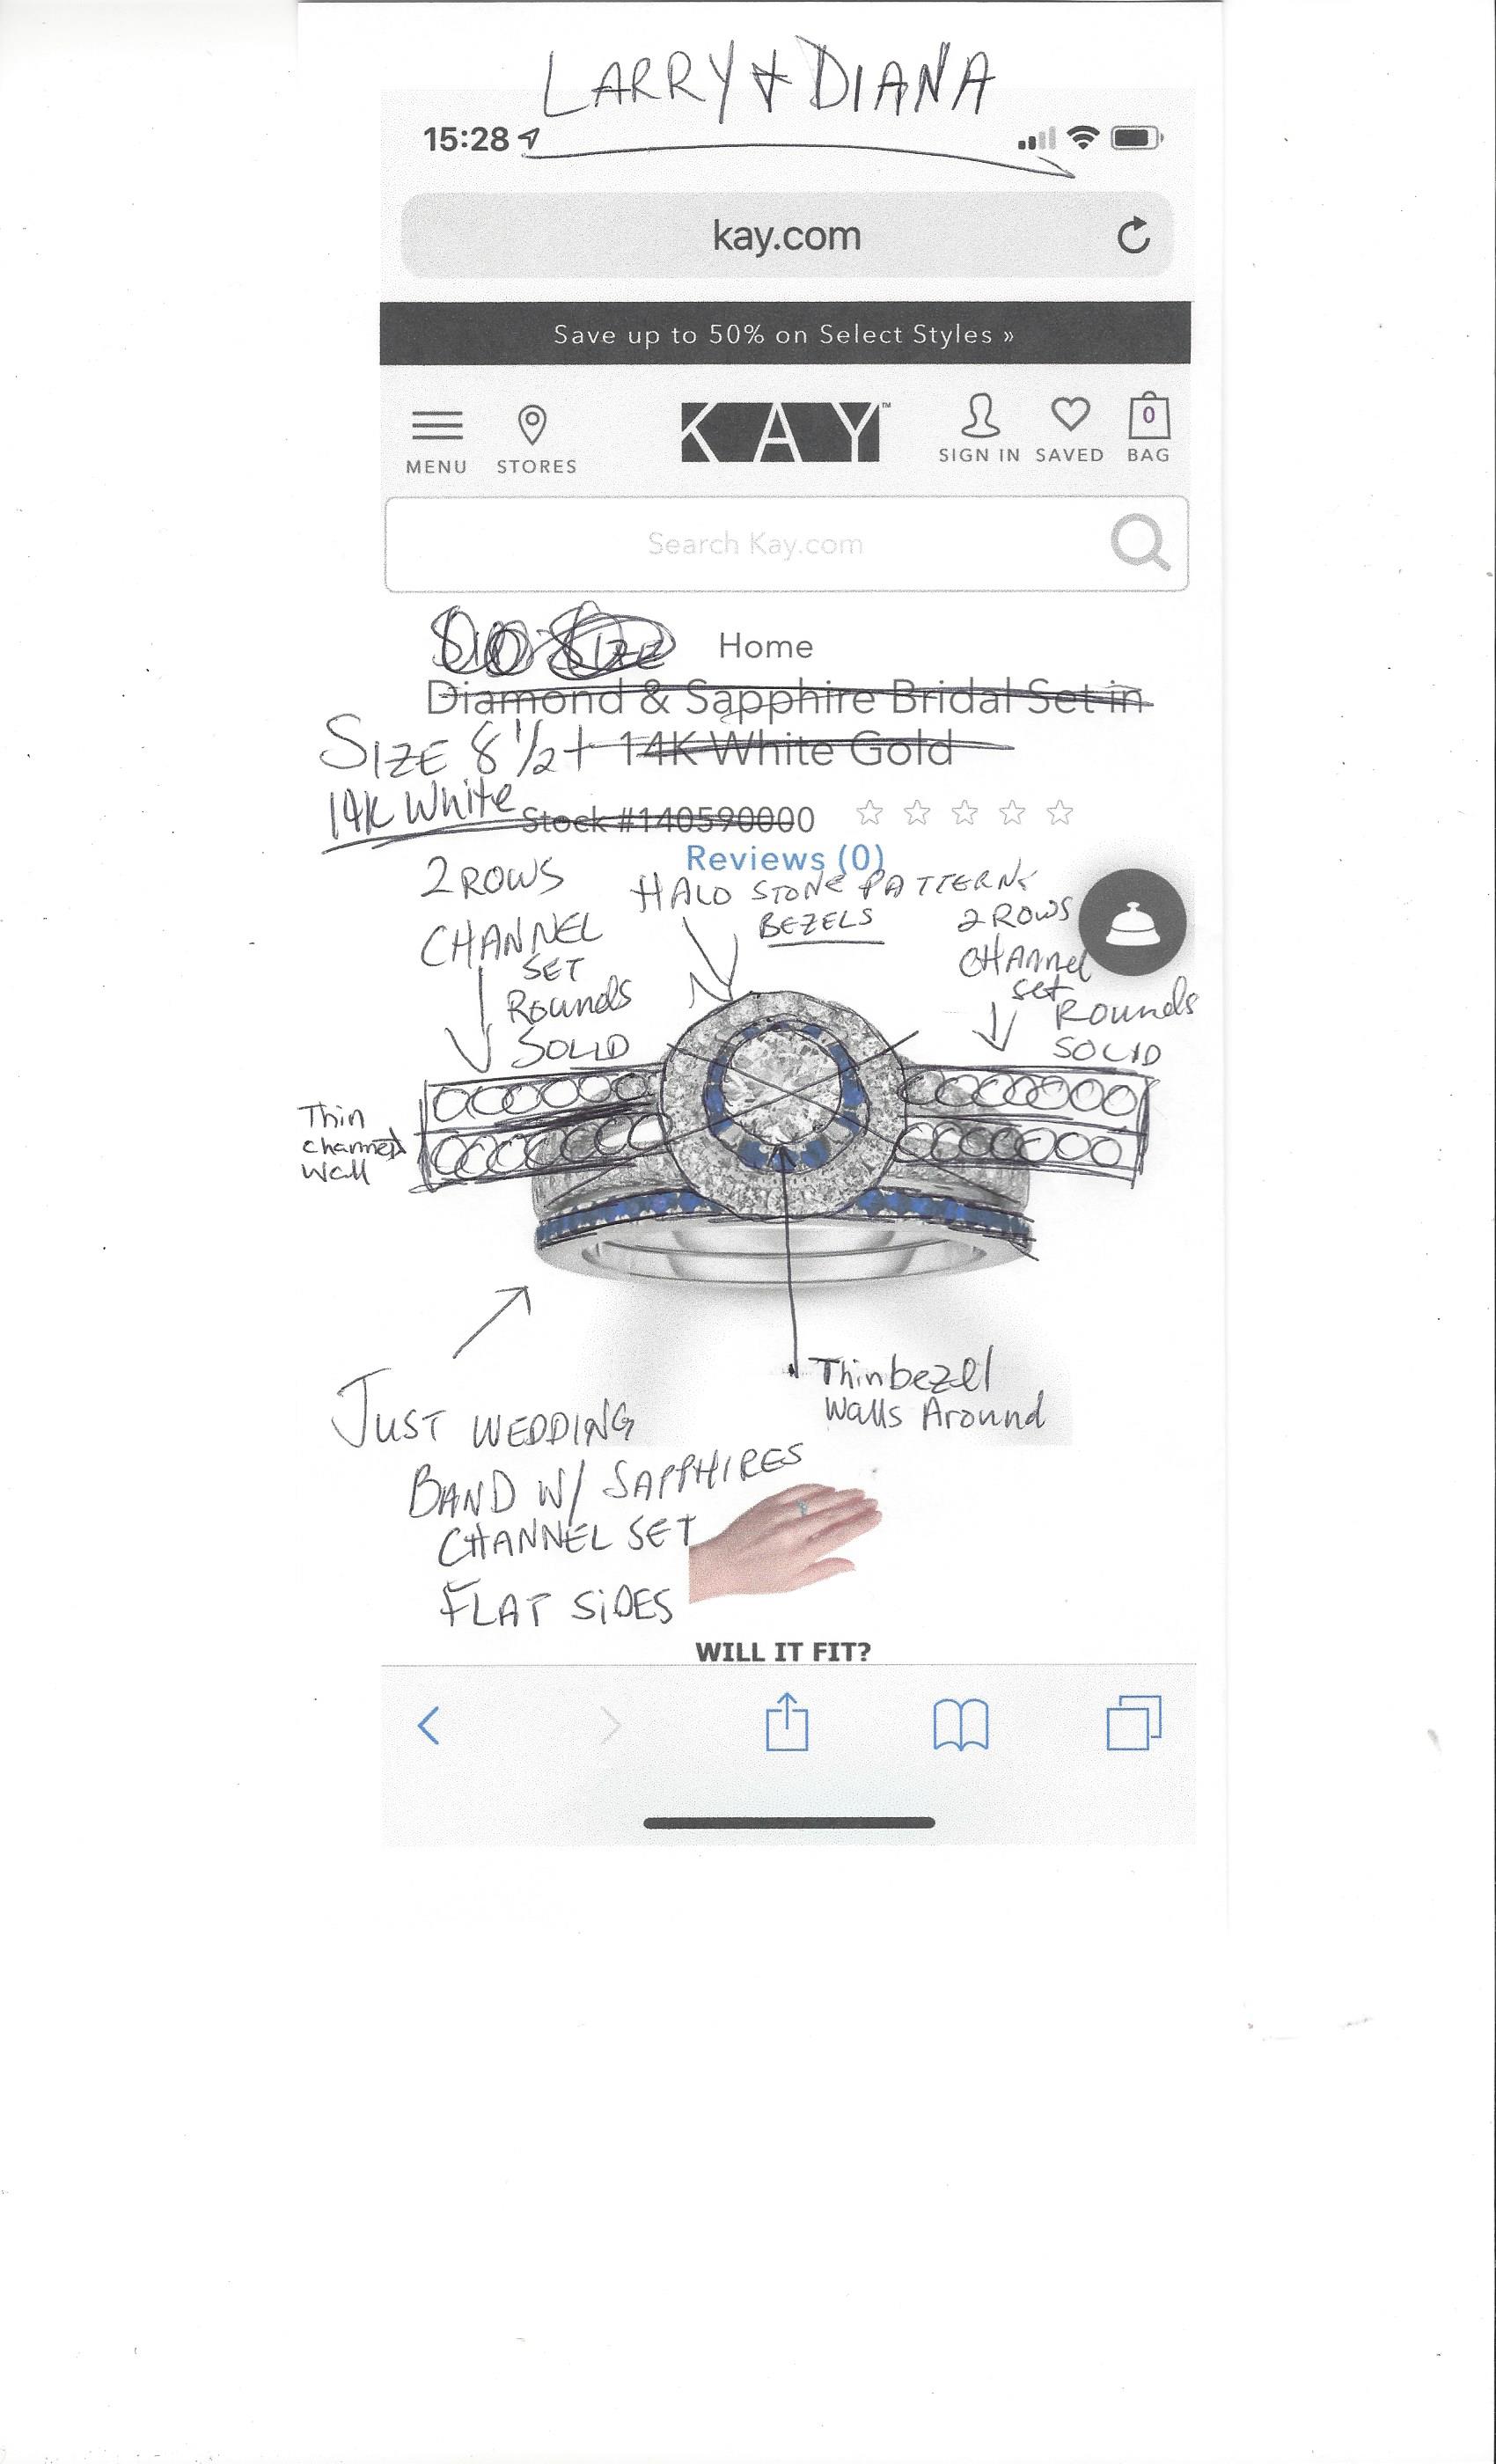 LARRY & DIANA
15:28
kay.com
Save up to 50% on Select Styles »
MENU
STORES
KAY™
SIGN IN
SAVED
0
BAG
Search Kay.com
SIZE
Home
Diamond & Sapphire Bridal Set in
14K White Gold
SIZE 8 1/2 +
14K White
Stock #140590000
Reviews (0)
2 ROWS
CHANNEL
SET
Rounds
SOLID
HALO STONE PATTERN
BEZELS
2 ROWS
CHANNEL
set
Rounds
SOLID
Thin
channel
wall
Thin bezel
walls Around
JUST WEDDING
BAND W/ SAPPHIRES
CHANNEL SET
FLAT SIDES
WILL IT FIT?